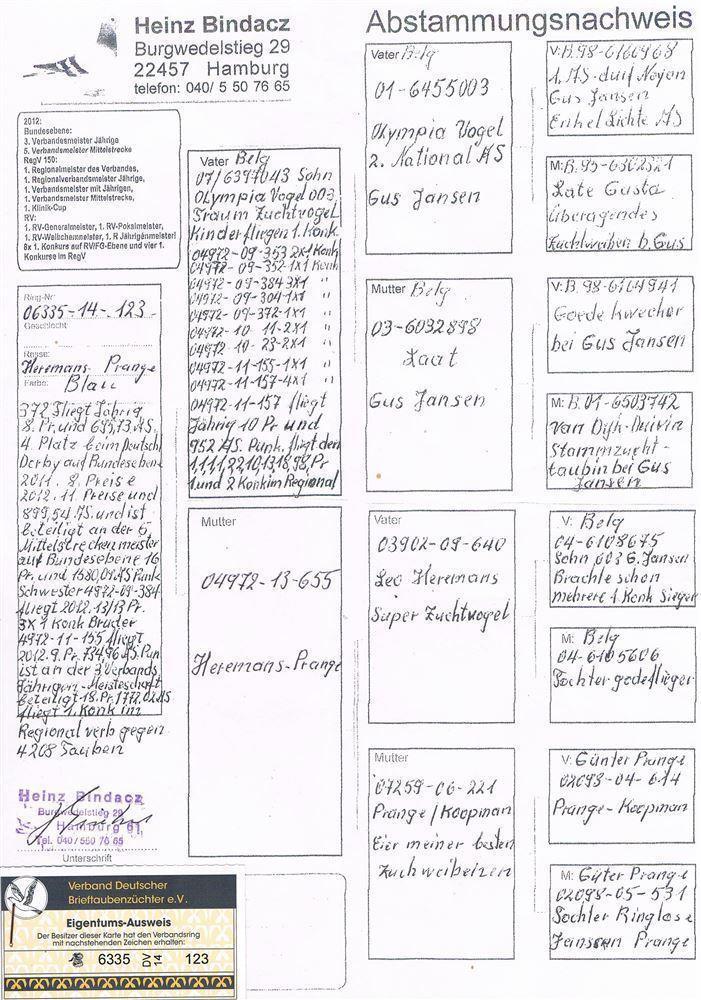 Heinz Bindacz
Burgwedelstieg 29
22457 Hamburg
telefon: 040/ 5 50 76 65
Abstammungsnachweis
2012:
Bundesebene:
3. Verbandesmeister Jährige
5. Verbandsmeister Mittelstrecke
RegV 150:
1. Regionalmeister des Verbandes,
1. Regionalverbandsmeister Jährige,
1. Verbandsmeister mit Jährigen,
1. Verbandsmeister Mittelstrecke,
1. Klinik-Cup
RV:
1. RV-Generalmeister, 1. RV-Pokalmeister,
1. RV-Weibchenmeister, 1. R Jährigenmeister!
8x 1. Konkurs auf RV/FG-Ebene und vier 1.
Konkurse im RegV
Ring-Nr
06335-14-123
Geschlecht
Rasse:
Heremans-Prange
Farbe: Blau
372 fliegt Jährig
8. Pr. und 695,13 AS.
4. Platz beim Deutsch
Derby auf Bundesebene
2011. 8. Preise
2012. 11 Preise und
899,54 AS. und ist
beteiligt an der 5
Mittelstreckenmeister
auf Bundesebene 16
Pr. und 1580,09 AS Punk
Schwester 4972-09-384
fliegt 2012. 13/13 Pr.
3X 1 Konk Bruder
4972-11-155 fliegt
2012. 9. Pr. 734,96 AS. Pun
ist an der 3 Verbands
Jährigen-Meisterschaft
beteiligt 18. Pr. 1772,02 AS
fliegt 1. Konk im
Regionalverb gegen
4208 Tauben
Heinz Bindacz
Burgwedelstieg 29
Hamburg 61
Tel. 040/550 76 65
Unterschrift
Verband Deutscher
Brieftaubenzüchter e.V.
Eigentums-Ausweis
Der Besitzer dieser Karte hat den Verbandsring
mit nachstehenden Zeichen erhalten:
6335 DV 14 123
Vater Belg
07/6397043 Sohn
Olympia Vogel 003
Traum Zuchtvogel
Kinder fliegen 1. Konk
04972-09-353 2x1 Konk
04972-09-352-1x1 Konk
04972-09-384 3X1 "
04972-09-304-1x1 "
04972-09-372-1x1 "
04972-10-11-2x1 "
04972-10-23-2x1 "
04972-11-155-1x1 "
04972-11-157-4x1 "
04972-11-157 fliegt
Jährig 10 Pr und
952 AS. Punk. fliegt den
1,1,1,1,2,2,10,13,18,98, Pr
1. und 2 Konk im Regional
Mutter
04972-13-655
Heremans-Prange
Vater Belg
01-6455003
Olympia Vogel
2. National AS
Gus Jansen
Mutter Belg
03-6032898
Zaat
Gus Jansen
Vater
03902-09-640
Leo Heremans
Super Zuchtvogel
Mutter
07259-06-221
Prange/Koopman
Eier meiner besten
V: B. 98-6160968
1. AS-duif Noyon
Gus Jansen
Enkel Lichte AS
M: B. 95-6302321
Late Gusta
überagendes
Zuchtweibchen b. Gus
V: B. 98-6164941
Goede kweeker
bei Gus Jansen
M: B. 01-6503742
Van Dijk-Duivin
Stammzucht-
taubin bei Gus
Jansen
V: Belg
04-6108675
Sohn 003 G. Jansen
Brachte schon
mehrere 1 Konk Sieger
M: Belg
04-6105606
Tochter godeflieger
V: Günter Prange
02098-04-614
Prange-Koopman
M: Güter Prange
02098-05-531
Tochter Ringlose
Janssen Prange